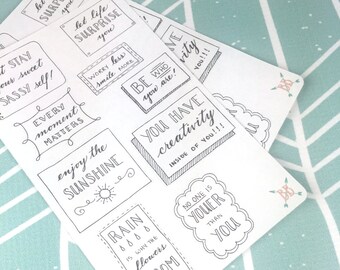 let life
SURPRISE
you
let life
SURPRISE
you
STAY
your sweet
SASSY self!
WORRY less
smile MORE
BE WHO
you are!
EVERY
moment
MATTERS
YOU HAVE
creativity
INSIDE OF YOU!!!
enjoy the
SUNSHINE
NO ONE IS
YOUER
THAN
YOU
RAIN
IS WHY THE
flowers